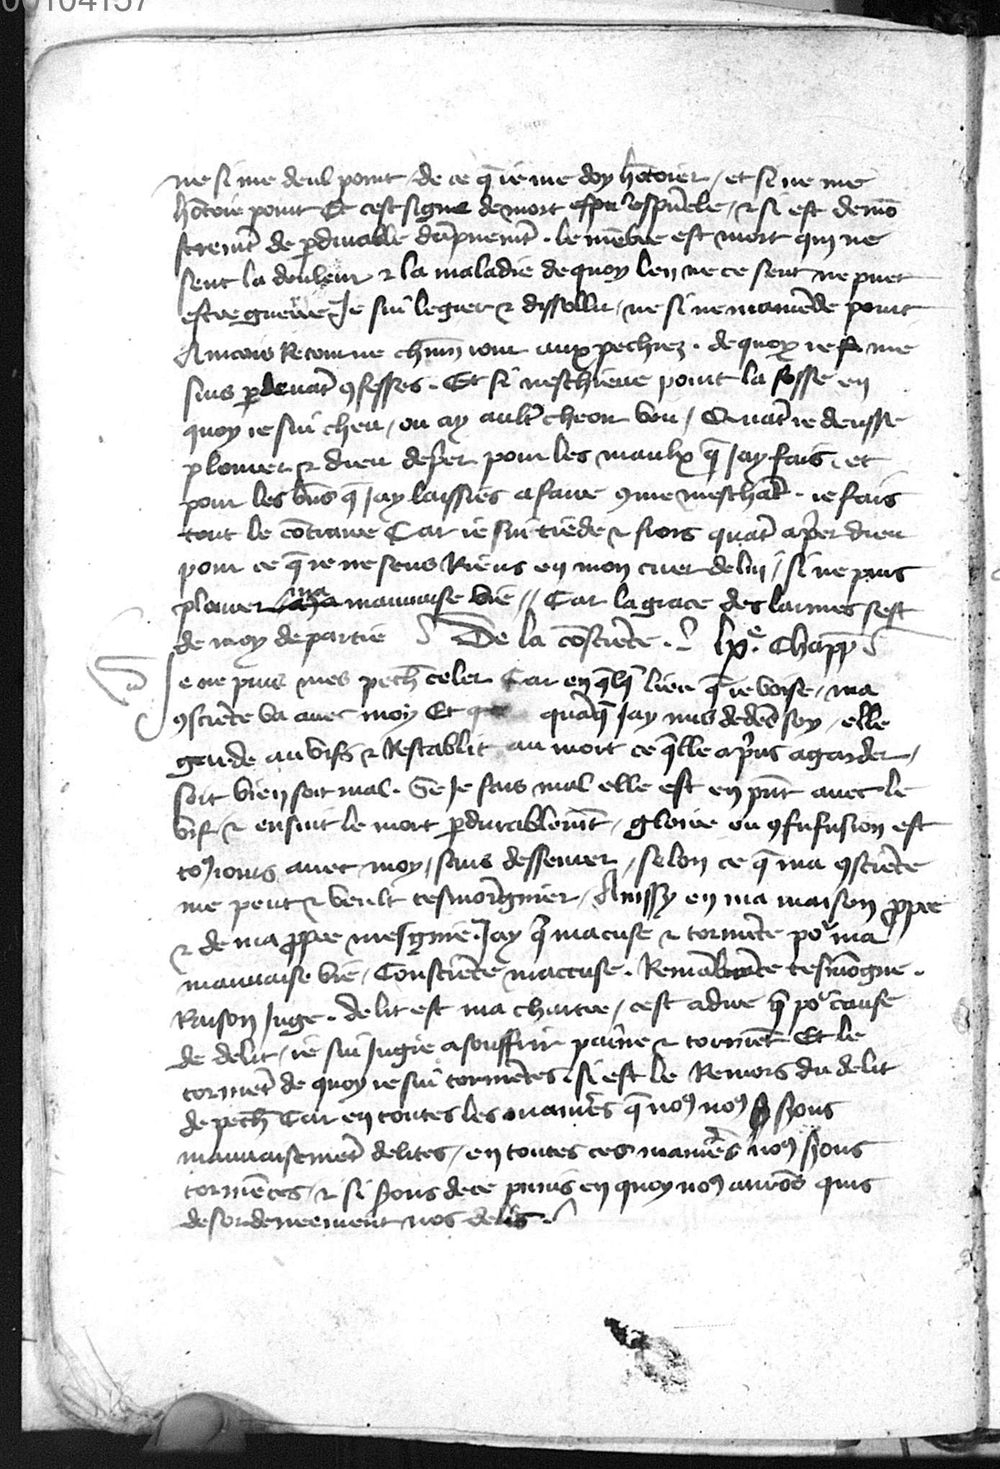 00104157
ne si me deul point / de ce q̄ ie me doy hōtoier / et si ne me
hōtoie point Et cest signe de mort esp̄uele / ⁊ si est demō
stremt̄ de p̄durable dāpnemt̄ . le mēbre est mort qui ne
sent la douleur ⁊ la maladie de quoy len ne ce sent ne puet
estre guerie Je sui legier ⁊ dissollu / ne si ne mamēde point
Aincois Retourne chūn iour aux pechiez . de quoy ie me
suis p̄ deuāt 9fesses . Et si neschieue point la fosse en
quoy ie sui cheu / ou ay aultr̄ cheoir veu / Quāt ie deusse
plourer ⁊ dieu deprier pour les maulx q̄ Jay fais . et
pour les bn̄s q̄ Jay laissies a faire 9me meschāt . ie fais
tout le cōtraire Car ie sui tiede ⁊ frois quāt a prier dieu
pour ce q̄ ie ne sens Riens en mon cuer de luy / si ne puis
plourer ma mauuaise vie // Car la grace des larmes sest
de moy departie De la cōsciēce . lx.e Chapp̄
Je ne puis mes pech̄ celer Car en q̄lq̄ lieu q̄ ie voise / ma
9sciēce va auec moy Et quāq̄ Jay mis dedēs soy / elle
garde au vifs ⁊ Restablit au mort ce q̄lle a p̄ns a garder /
soit bien soit mal . Se Je fais mal elle est en p̄nt auec le
vif ⁊ ensuit le mort p̄durablemt̄ / gloire ou 9fusion est
to9iours auec moy / sans desseurer / selon ce q̄ ma 9sciēce
me peut ⁊ veult tesmoingnier / Aussy en ma maison p̄pre
⁊ de ma p̄pre mesgnie . Jay q̄ macuse ⁊ tormēte po' ma
mauuaise vie / Consciēce maccuse . Remēbrāce tesmōgne .
Raison Juge . delit est ma chartre / cest a dire q̄ po' cause
de delit / ie sui Jugie a souffrir paine ⁊ tormēt Et le
tormēt de quoy ie sui tormētes . si est le Remors du delit
de pech̄ Car en toutes les maniēs q̄ no9 no9 syons
mauuaisemēt delites / en toutes ces maniēs no9 syons
tormētes / ⁊ si syons de ce punis en quoy no9 aurōs quis
desordeneement nos delis .